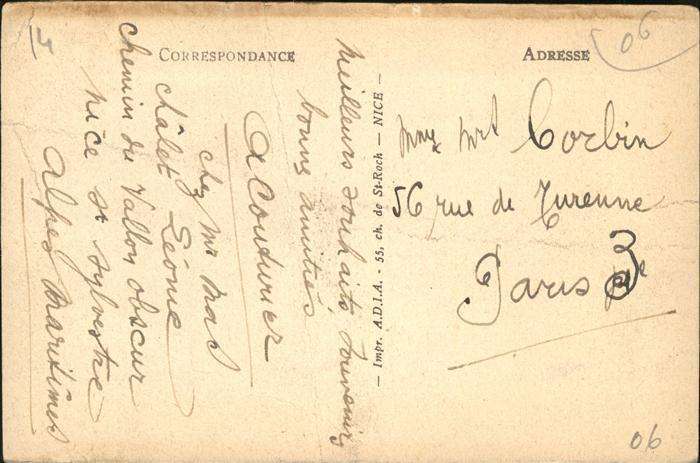 CORRESPONDANCE
Meilleurs souhaits souvenirs
bonne amitiés
A Coudurier
chez Mr Mas
châlet Léonie
chemin du Vallon obscur
Nice St Sylvestre
Alpes Maritimes
— Impr. A.D.I.A. - 55, ch. de St-Roch — NICE —
ADRESSE
06
Mme Corbin
56 rue de Turenne
Paris 3
06